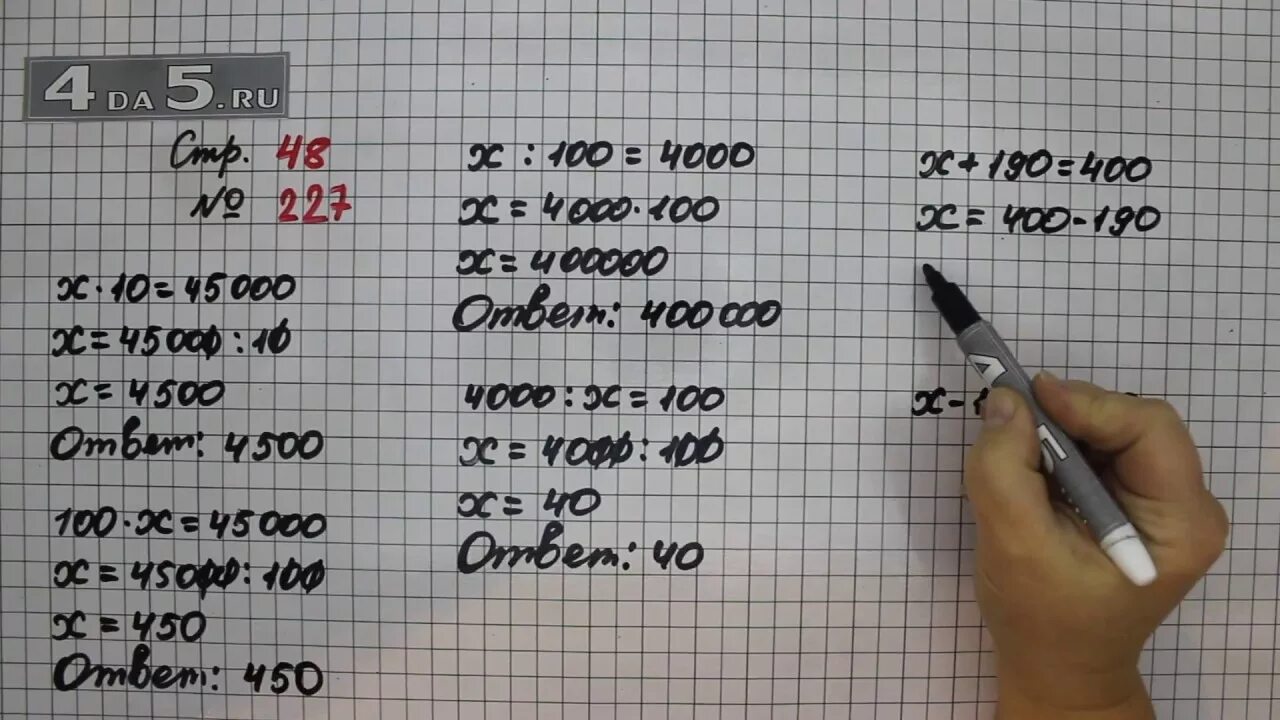 4 DA 5.RU
Стр. 48
№ 227
x · 10 = 45 000
x = 45000 : 10
x = 4500
Ответ: 4500
100 · x = 45 000
x = 45000 : 100
x = 450
Ответ: 450
x : 100 = 4000
x = 4000 · 100
x = 400000
Ответ: 400 000
4000 : x = 100
x = 4000 : 100
x = 40
Ответ: 40
x + 190 = 400
x = 400 - 190
x -